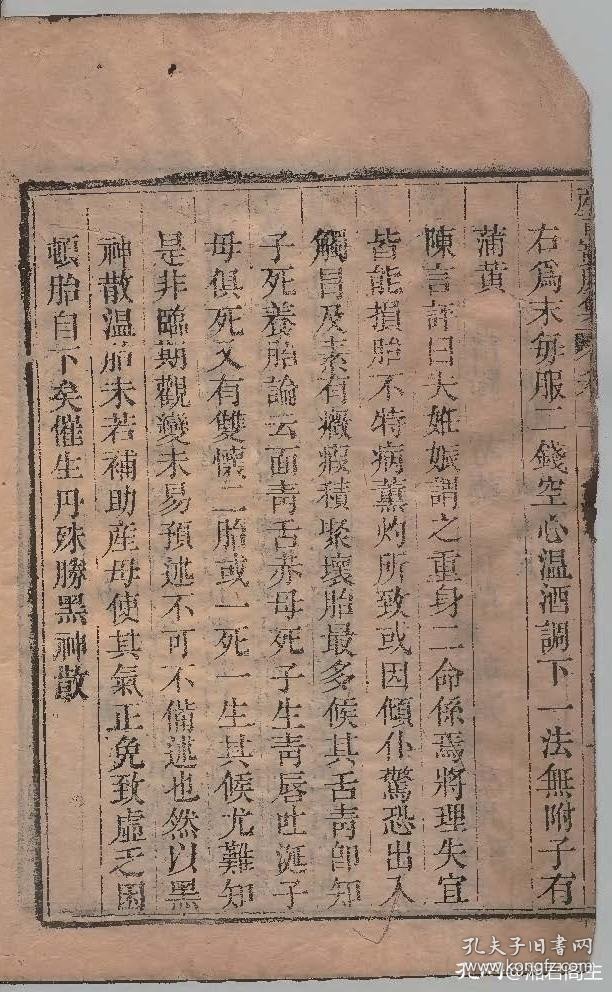 右爲末每服二錢空心温酒調下一法無附子有
蒲黃
陳言評曰夫姙娠謂之重身二命係焉將理失宜
皆能損胎不特病薰灼所致或因傾仆驚恐出入
觸冒及素有癥瘕積聚壞胎最多候其舌靑卽知
子死養胎論云面靑舌赤母死子生靑唇吐涎子
母俱死又有雙懷二胎或一死一生其候尤難知
是非臨期觀變未易預述不可不備述也然以黑
神散温胎未若補助産母使其氣正免致虛乏困
頓胎自下矣催生丹殊勝黑神散
孔夫子旧书网
kongfz.com